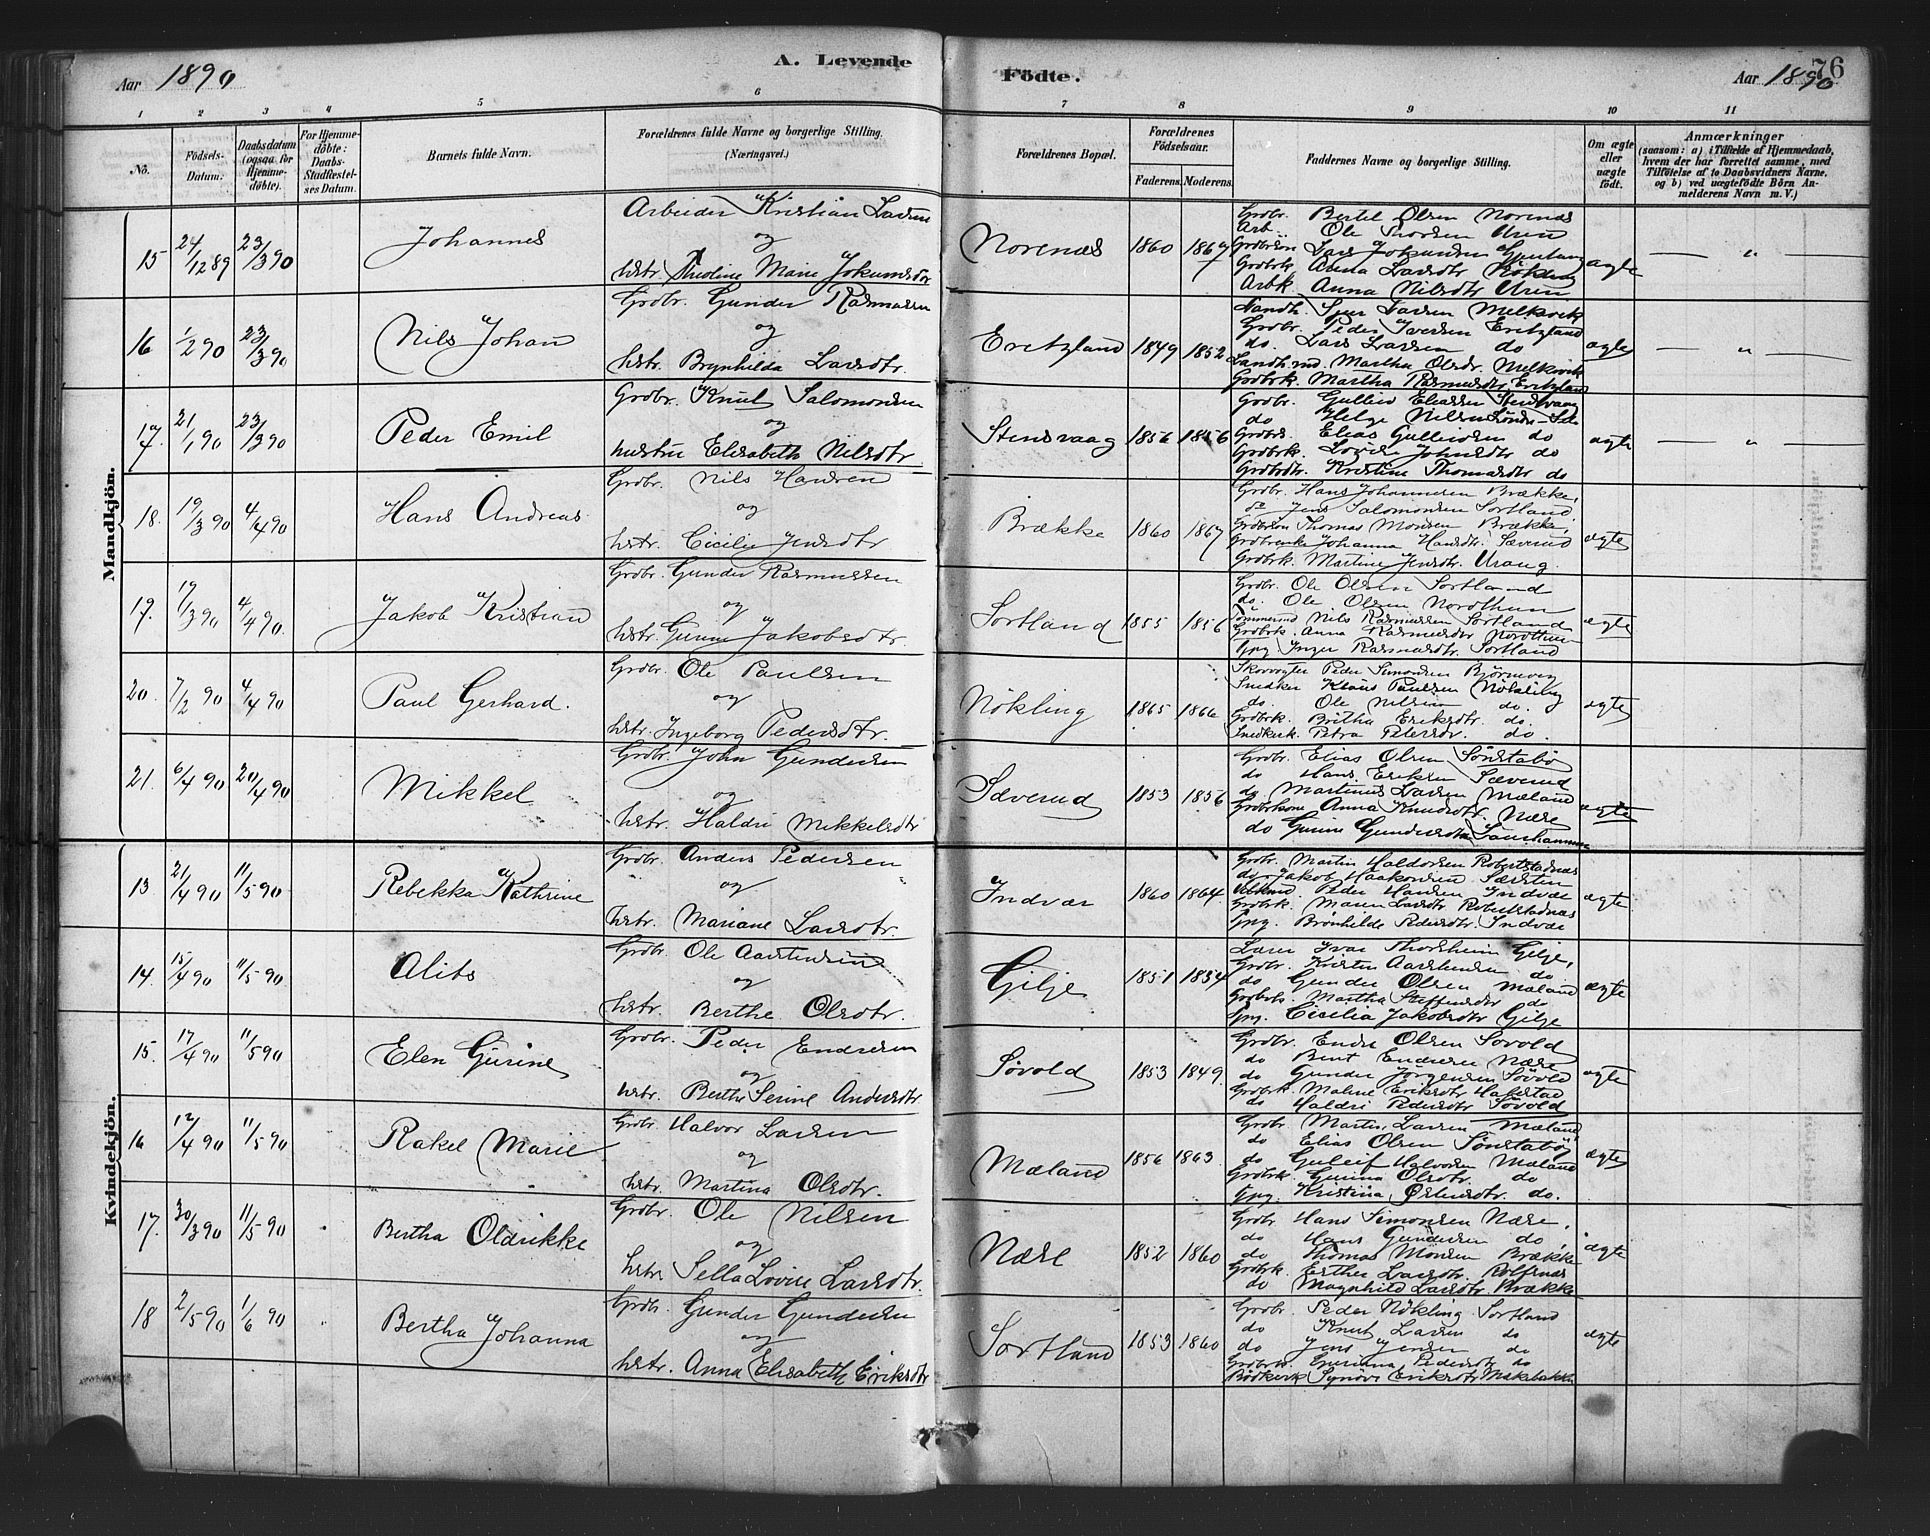 Aar 1890
A. Levende
Födte.
Aar 1890
76
1 2 3 4 5 6 7 8 9 10 11
No.
Födsels-Datum.
Daabsdatum (ogsaa for Hjemmedøbte).
For Hjemmedöbte: Daabs-Stadfæstelses Datum.
Barnets fulde Navn.
Forældrenes fulde Navne og borgerlige Stilling. (Næringsvei.)
Forældrenes Bopæl.
Forældrenes Födselsaar.
Faderens. Moderens.
Faddernes Navne og borgerlige Stilling.
Om ægte eller uægte födt.
Anmærkninger
(saasom: a) i Tilfælde af Hjemmedaab, hvem der har forrettet samme, med Tilföielse af to Daabsvidners Navne, og b) ved uægtefödte Börn Anmelderens Navn m. V.)
Mandkjön.
15 24/12 89 23/3 90 Johannes
Arbeider Kristian Larsen
og
hstr. Theoline Marie Jokumsdtr
Norenæs 1860 1867
Grdbr. Bertel Olsen Norenæs
Arb. Ole Thorsen Uren
Lars Jokumsen
Grdbrk. Anna Larsdtr
Arbk. Anna Nilsdtr Uren
ægte — " —
16 1/2 90 23/3 90 Nils Johan
Grdbr. Gunder Rasmussen
og
hstr. Brynhilda Larsdtr.
Eritzland 1849 1852
Landh. Sjur Larsen Melkevik
Grdbr. Peder Iversen Eritzland
do. Lars Larsen do
Landh. Martha Olsdr. Melkevik
Grdbrk. Martha Rasmusdtr Eritzland
ægte — " —
17 21/1 90 23/3 90 Peder Emil
Grdbr. Knut Salomonsen
og
hustru Elisabeth Nilsdtr
Stensvaag 1856 1856
Grdbr. Gulleiv Eliassen Stensvaag
do Helge Nilsen
Elias Gulleivsen do
Grdbrk. Lovise Johnsdtr do
Grdbrdtr. Kristine Thomasdtr do
ægte — " —
18. 19/3 90 4/4 90 Hans Andreas
Grdbr. Nils Hansen
og
hstr. Cicilie Jensdtr
Brække 1860 1867
Grdbr. Hans Johannesen Brække,
do Jens Salomonsen Sortland
Grdbrsøn Thomas Monsen Brække,
Grdbrenke Johanna Hansdtr. Sæverud
Grdbrk. Martine Jensdtr. Urang.
ægte
19. 17/3 90 4/4 90. Jakob Kristian
Grdbr. Gunder Rasmussen
og
hstr. Gurine Jakobsdtr
Sortland 1855 1856
Grdbr. Ole Olsen Sortland
do. Ole Olsen Nordthun
Tömmermd Nils Rasmussen Sortland
Grdbrk. Anna Rasmusdtr Nordthun
Gpg Inger Rasmusdtr. Sortland
ægte
20. 7/2 90 4/4 90 Paul Gerhard.
Grdbr. Ole Paulsen
og
hstr. Ingeborg Pedersdtr.
Nökling 1865 1866
Skovvogter Peder Simonsen Björnevog
Snedker Klaus Paulsen Nökling
do. Ole Nilsen do.
Grdbrk. Britha Eriksdtr. do.
Snedkerk. Petra Petersdr. do.
ægte
21. 6/4 90 20/4 90 Mikkel
Grdbr. John Gundersen
og
hstr. Haldis Mikkelsdtr
Sæverud 1853 1856
Grdbr. Elias Olsen Sönstabö
do Hans Eriksen Sæverud
do Martinus Larsen Mæland
Grdbrkone Anna Knudsdtr. Nære
do Gurine Gundersdtr
ægte
Kvindekjön.
13. 21/4 90 11/5 90 Rebekka Kathrine
Grdbr. Anders Pedersen
og
hstr. Mariane Larsdtr.
Indvær 1860 1864.
Grdbr. Martin Haldorsen Robertstadnæs
do Jakob Haakonsen Særsten
Peder Hansen Indvær
Grdbrk. Maren Larsdtr Robertstadnæs
Gpg. Brönhilde Pedersdtr. Indvær
ægte
14. 15/4 90 11/5 90 Alits
Grdbr. Ole Aarstensen
og
hstr. Berthe Olsdtr.
Gilje 1851 1854
Lærer Ivar Thorsheim Gilje,
Grdbr. Kristen Aarstensen do
do Gunder Olsen Mæland
Grdbrk. Martha Steffensdtr do
Gpg. Cicilia Jakobsdtr Gilje
ægte
15. 17/4 90 11/5 90 Elen Gurine
Grdbr. Peder Endresen
og
hstr. Berthe Serine Andersdtr
Sövold 1853 1849.
Grdbr. Endre Olsen Sovold
do Bent Endresen Nære
do Gunder Jörgensen Sövold
Grdbrk. Malene Eriksdtr Habestad
do Haldis Pedersdtr Sövold
ægte
16 12/4 90 11/5 90 Rakel Marie
Grdbr. Halvor Larsen
og
hstr. Martina Olsdtr.
Mæland 1856 1863.
Grdbr. Martin Larsen Mæland
do Elias Olsen Sönstabö
do Guleif Halvorsen Mæland
Grdbrk. Gurina Olsdtr. do
Gpg. Kristina Östensdtr. do.
ægte
17. 30/3 90 11/5 90 Bertha Oldrikke
Grdbr. Ole Nilsen
og
hstr Sella Lovise Larsdtr.
Nære 1852 1860
Grdbr Hans Simonsen Nære.
do Hans Gundersen do
do Thomas Monsen Brække
Grdbrk. Esther Larsdtr. Rolfsnæs
do Magnhild Larsdtr. Brække
ægte
18 2/5 90 1/6 90 Bertha Johanna
Grdbr. Gunder Gundersen
og
hstr. Anna Elisabeth Eriksdtr
Sortland 1853 1860
Grdbr. Peder Nökling Sortland
do Knut Larsen do
do Jens Jensen do
Pedersdtr do
Bödkerk Synöve Eriksdtr. Makebakke
ægte